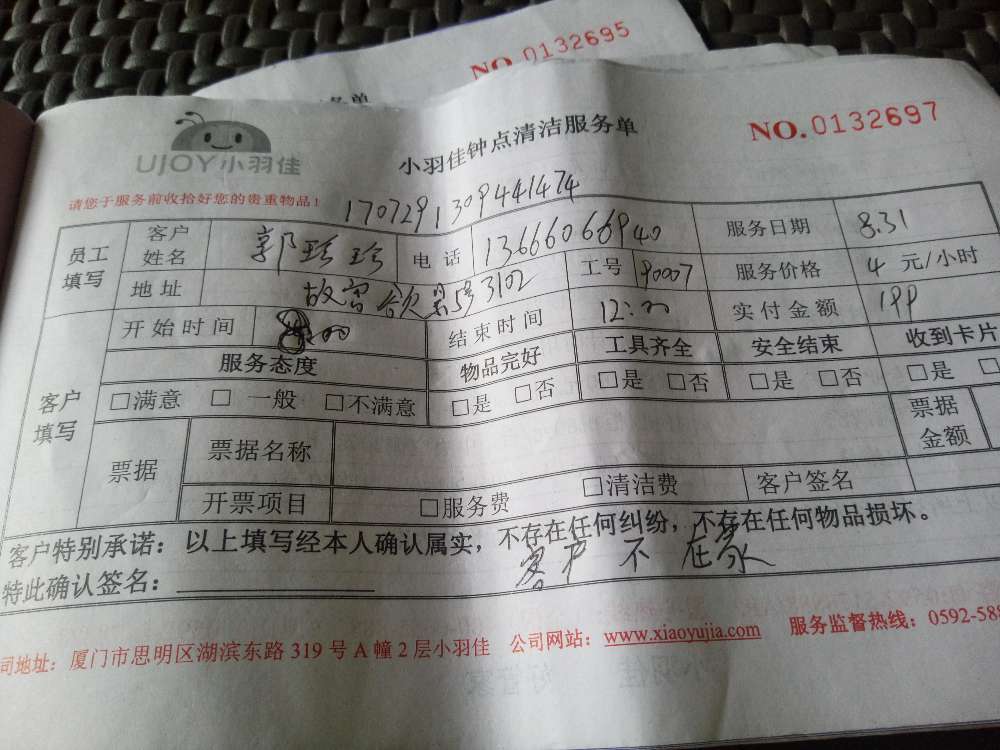 NO.0132695
务单
UJOY小羽佳
小羽佳钟点清洁服务单
NO.0132697
请您于服务前收拾好您的贵重物品！
1707291309441474
员工填写 客户姓名 郭珍珍 电话 13666066940 服务日期 8.31
地址 故宫 3102 工号 90007 服务价格 4 元/小时
开始时间 结束时间 12:00 实付金额 199
客户填写 服务态度 物品完好 工具齐全 安全结束 收到卡片
□满意 □一般 □不满意 □是 □否 □是 □否 □是 □否 □是 □
票据 票据名称 票据金额
开票项目 □服务费 □清洁费 客户签名
客户特别承诺：以上填写经本人确认属实，不存在任何纠纷，不存在任何物品损坏。
特此确认签名： 客户不在家
司地址：厦门市思明区湖滨东路 319 号 A 幢 2 层小羽佳 公司网站：www.xiaoyujia.com 服务监督热线：0592-588